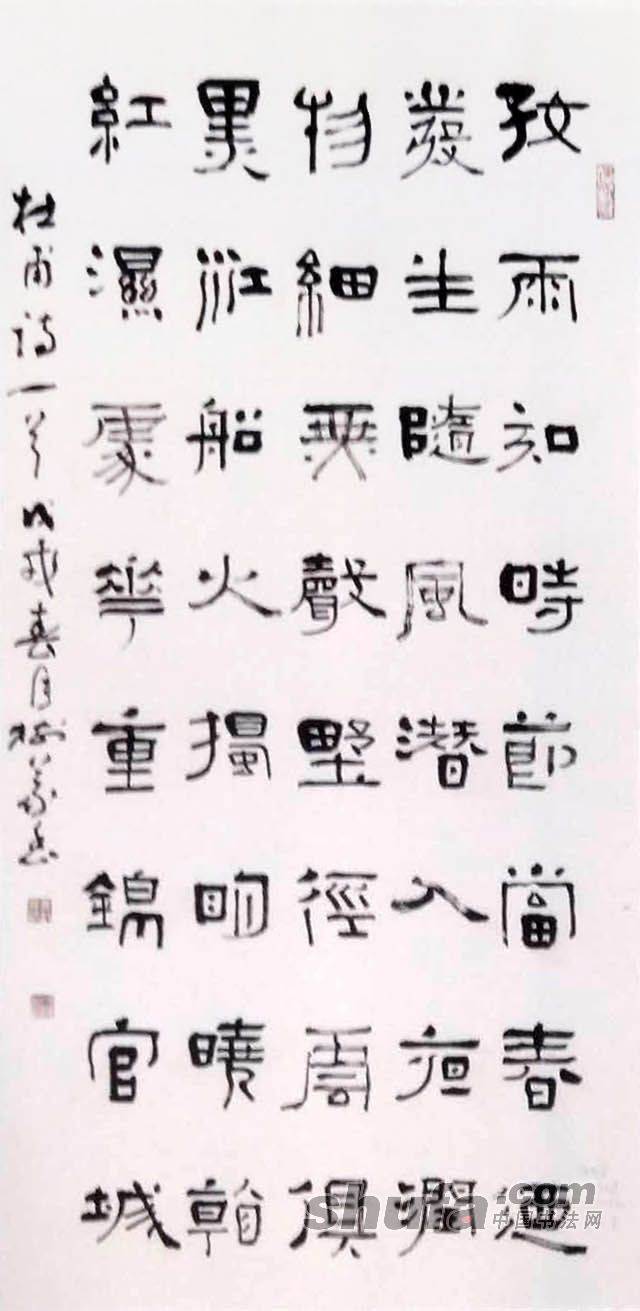 好雨知時節當春迺
發生隨風潛入夜潤
物細無聲野徑雲俱
黑江船火獨眀曉看
紅濕處華重錦官城
杜甫詩一首戊戌春月書
.com
中国书法网